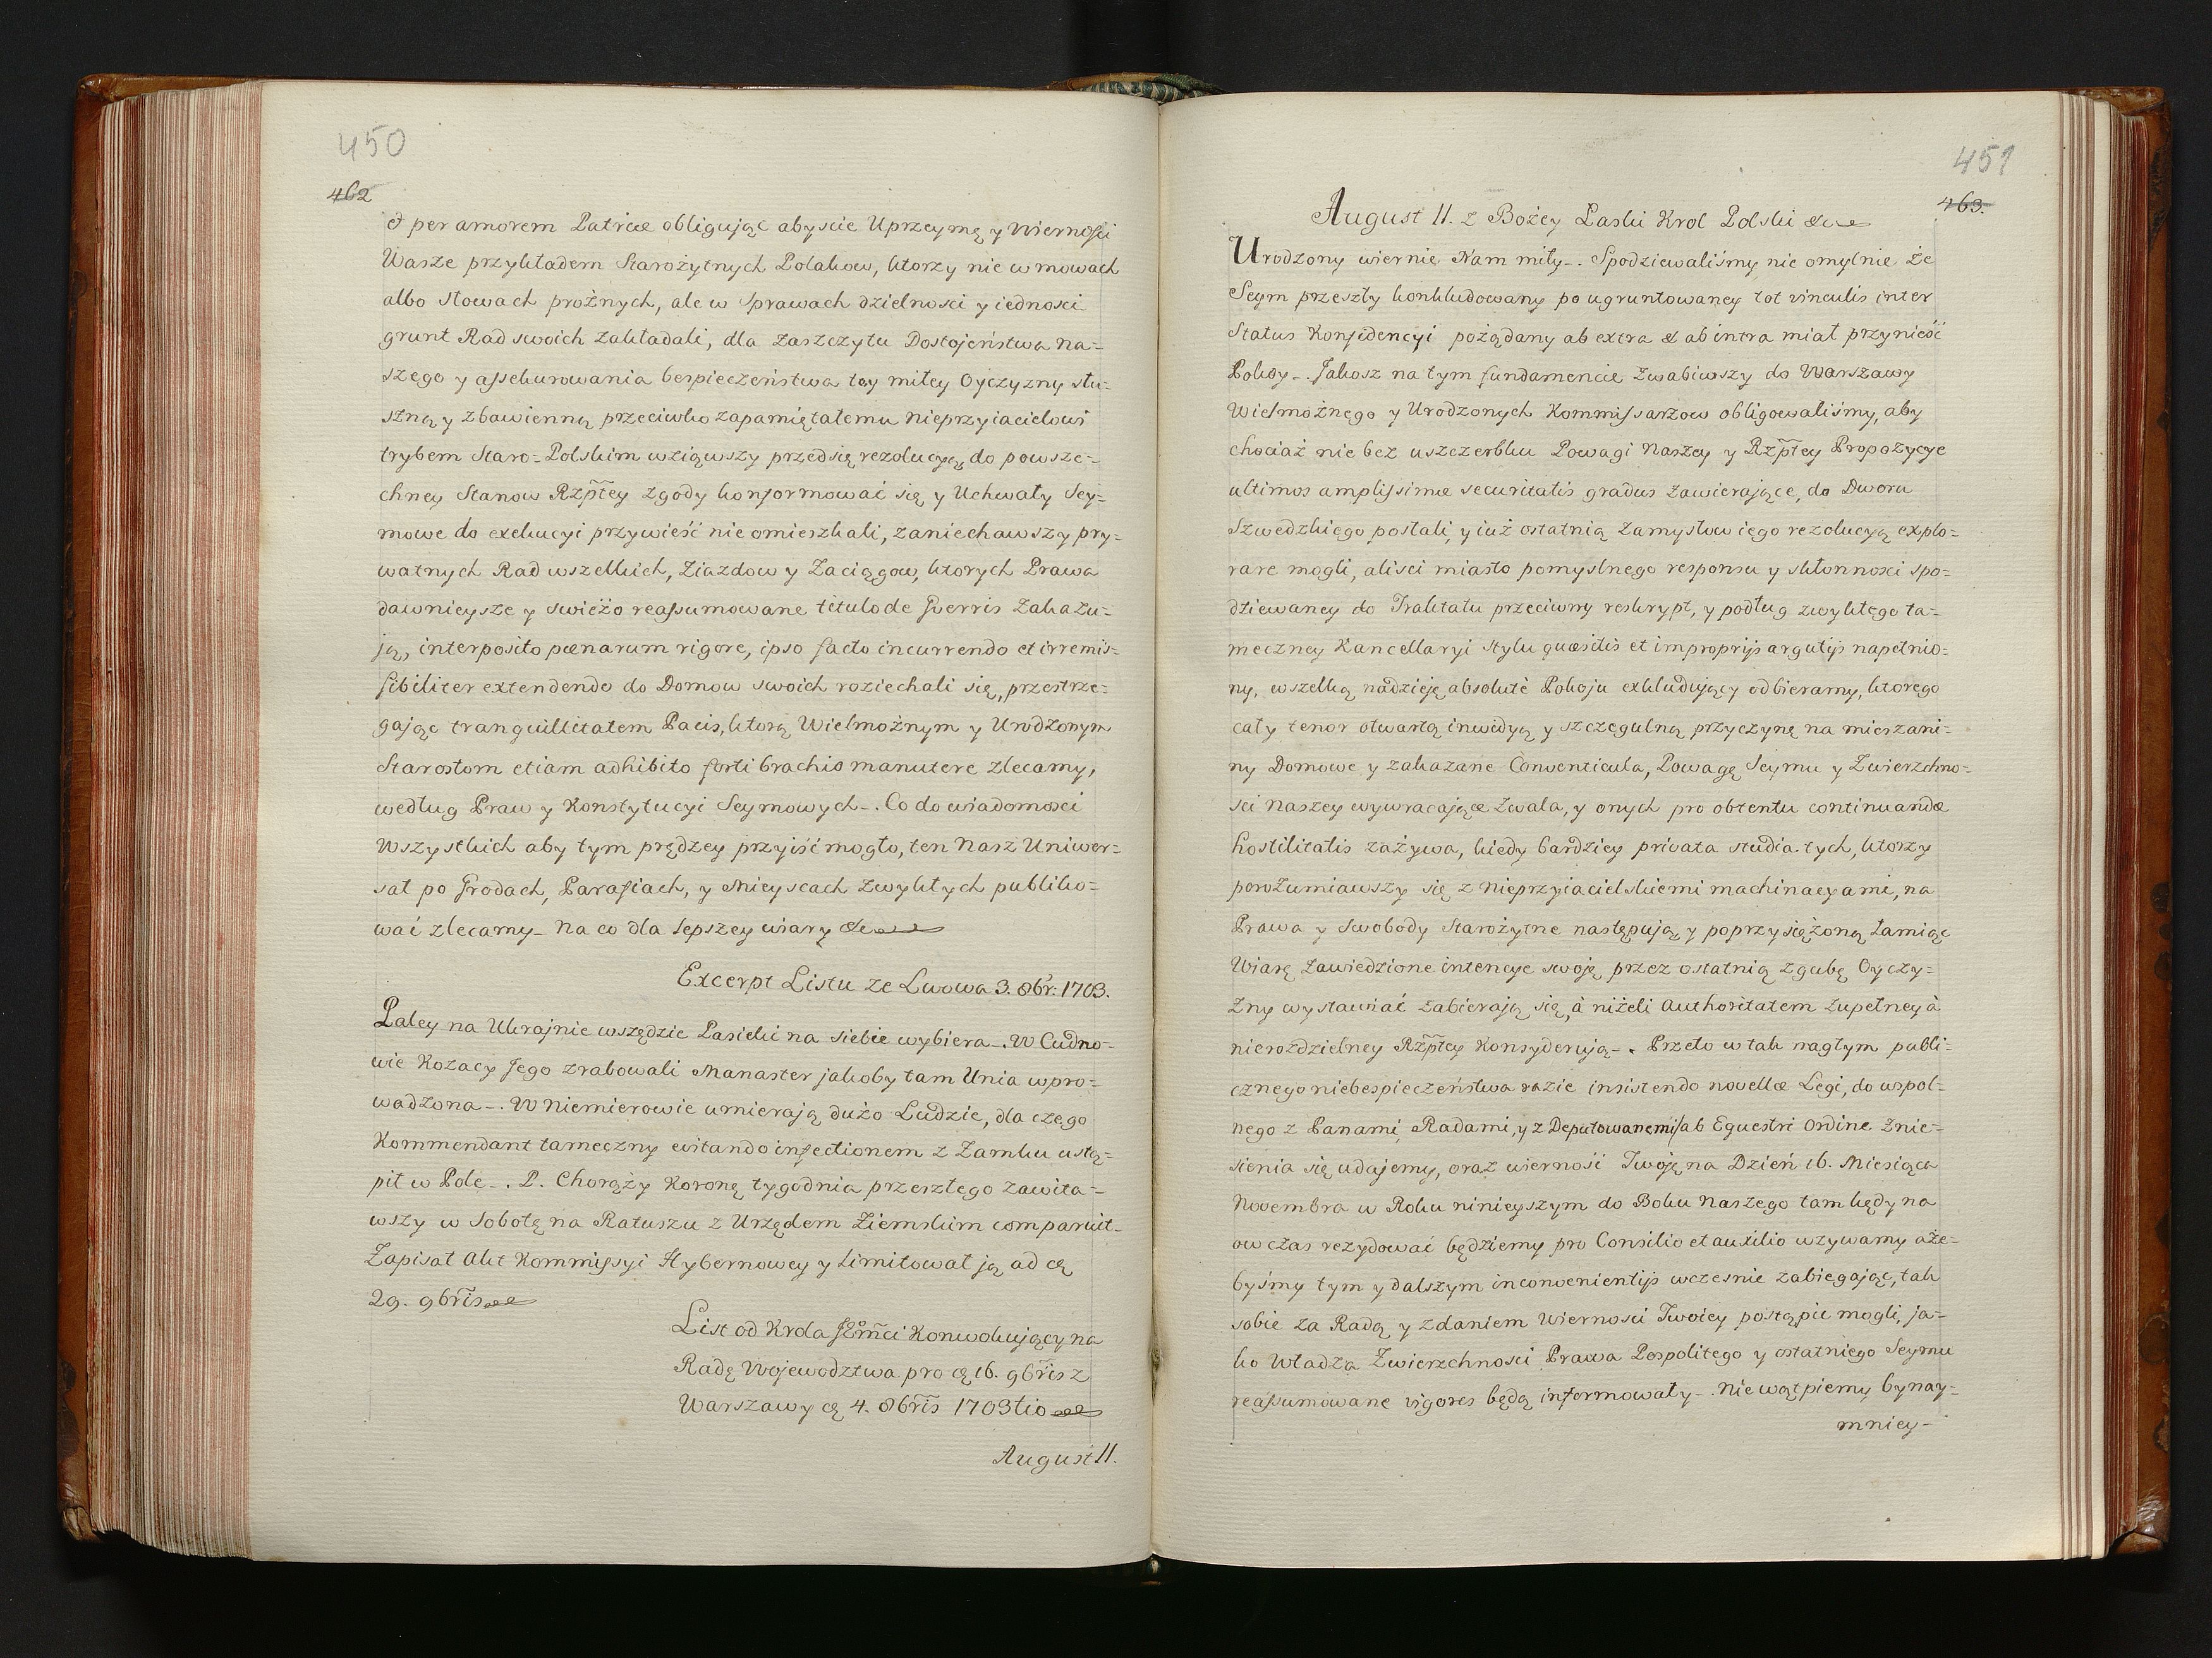 450
462
& per amorem Patriæ obligując abyscie Uprzeymę y Wiernosci
Wasze przykładem Starożytnych Polakow, ktorzy nie w mowach
albo słowach prożnych, ale w sprawach dzielnosci y iednosci
grunt Rad swoich zakładali, dla zaszczytu Dostojeństwa na=
szego y assekurowania bespieczeństwa tey miłey Oyczyzny słu=
szną y zbawienną przeciwko zapamiętałemu nieprzyiacielowi
trybem Staro=Polskim wziąwszy przed się rezolucyą, do powsze=
chney Stanow Rzptey zgody konformować się y Uchwały Sey=
mowe do exekucyi przywieść nie omieszkali, zaniechawszy pry=
watnych Rad wszelkich, Ziazdow y Zaciągow, ktorych Prawa
dawnieysze y swieżo reassumowane titulo de Gverris zakazu=
ją, interposito pœnarum rigore, ipso facto incurrendo et irremis=
sibiliter extendendo do Domow swoich roziechali się, przestrze=
gając tranquillitatem Pacis, ktorą Wielmożnym y Urodzonym
Starostom etiam adhibito forti brachio manutere zlecamy,
według Praw y Konstytucyi Seymowych_. Co do wiadomosci
Wszystkich aby tym prędzey przyiść mogło, ten Nasz Uniwer=
sał po Grodach, Parafiach, y Mieyscach zwykłych publiko=
wać zlecamy_ Na co dla lepszey wiary &c
Excerpt Listu ze Lwowa 3. 8br: 1703.
Paley na Ukrajnie wszędzie Pasieki na siebie wybiera_. W Cudno=
wie Kozacy Jego zrabowali Manaster jakoby tam Unia wpro=
wadzona_. W Niemierowie umierają dużo Ludzie, dla czego
Kommendant tameczny evitando infectionem z Zamku ustą=
pił w Pole_. P. Chorąży Koronę tygodnia przeszłego zawita=
wszy w Sobotę na Ratuszu z Urzędem Ziemskim comparuit_
Zapisał Akt Kommissyi Hybernowey y limitował ją ad cą
29. 9bris
List od Krola Jmci Konwokujący na
Radę Wojewodztwa pro cą 16. 9bris z
Warszawy cą 4. 8bris 1703tio
August II.
451
463.
August II. z Bożey Łaski Krol Polski &c
Urodzony wiernie Nam miły_. Spodziewaliśmy nie omylnie że
Seym przeszły konkludowany po ugruntowaney tot vinculis inter
Status Konfidencyi pożądany ab extra & ab intra miał przynieść
Pokoy_. Jakosz na tym fundamencie zwabiwszy do Warszawy
Wielmożnego y Urodzonych Kommissarzow obligowaliśmy, aby
chociaż nie bez uszczerbku Powagi Naszey y Rzptey Propozycye
ultimos amplissimæ securitatis gradus zawierające, do Dworu
Szwedzkiego posłali, y iuż ostatnią zamysłow iego rezolucyą explo=
rare mogli, alisci miasto pomyslnego responsu y skłonnosci spo=
dziewaney do Traktatu przeciwny reskrypt, y podług zwykłego ta=
meczney Kancellaryi stylu quæsitis et improprijs argutijs napełnio=
ny, wszelką nadzieję absolutè Pokoju exkludujący odbieramy, ktorego
cały tenor otwartą inwidyą y szczegulną przyczynę na mieszani=
ny Domowe y zakazane Conventicula, Powagę Seymu y Zwierzchno=
sci Naszey wywracające zwala, y onych pro obtentu continuandæ
hostilitatis zażywa, kiedy bardziey privata studia tych, ktorzy
porozumiawszy się z nieprzyiacielskiemi machinacyami, na
Prawa y Swobody Starożytne następują y poprzysiężoną łamiąc
Wiarę zawiedzione intencye swoję przez ostatnią zgubę Oyczy=
zny wystawiać zabierają się, à niżeli Authoritatem zupełney à
nierozdzielney Rzptey Konsyderują_. Przeto w tak nagłym publi=
cznego niebespieczeństwa razie insistendo novellæ Legi, do wspol=
nego z Panami, Radami, y z Deputowanemi ab Equestri Ordine znie=
sienia się udajemy, oraz wierność Twoję na Dzień 16. Miesiąca
Novembra w Roku ninieyszym do Boku Naszego tam kędy na
ow czas rezydować będziemy pro Consilio et auxilio wzywamy aże=
byśmy tym y dalszym inconvenientijs wczesnie zabiegając, tak
sobie za Radą y zdaniem Wiernosci Twoiey postąpić mogli, ja=
ko Władza Zwierzchnosci Prawa Pospolitego y ostatniego Seymu
reassumowane vigores będą informowały_. Nie wątpiemy bynay=
mniey_